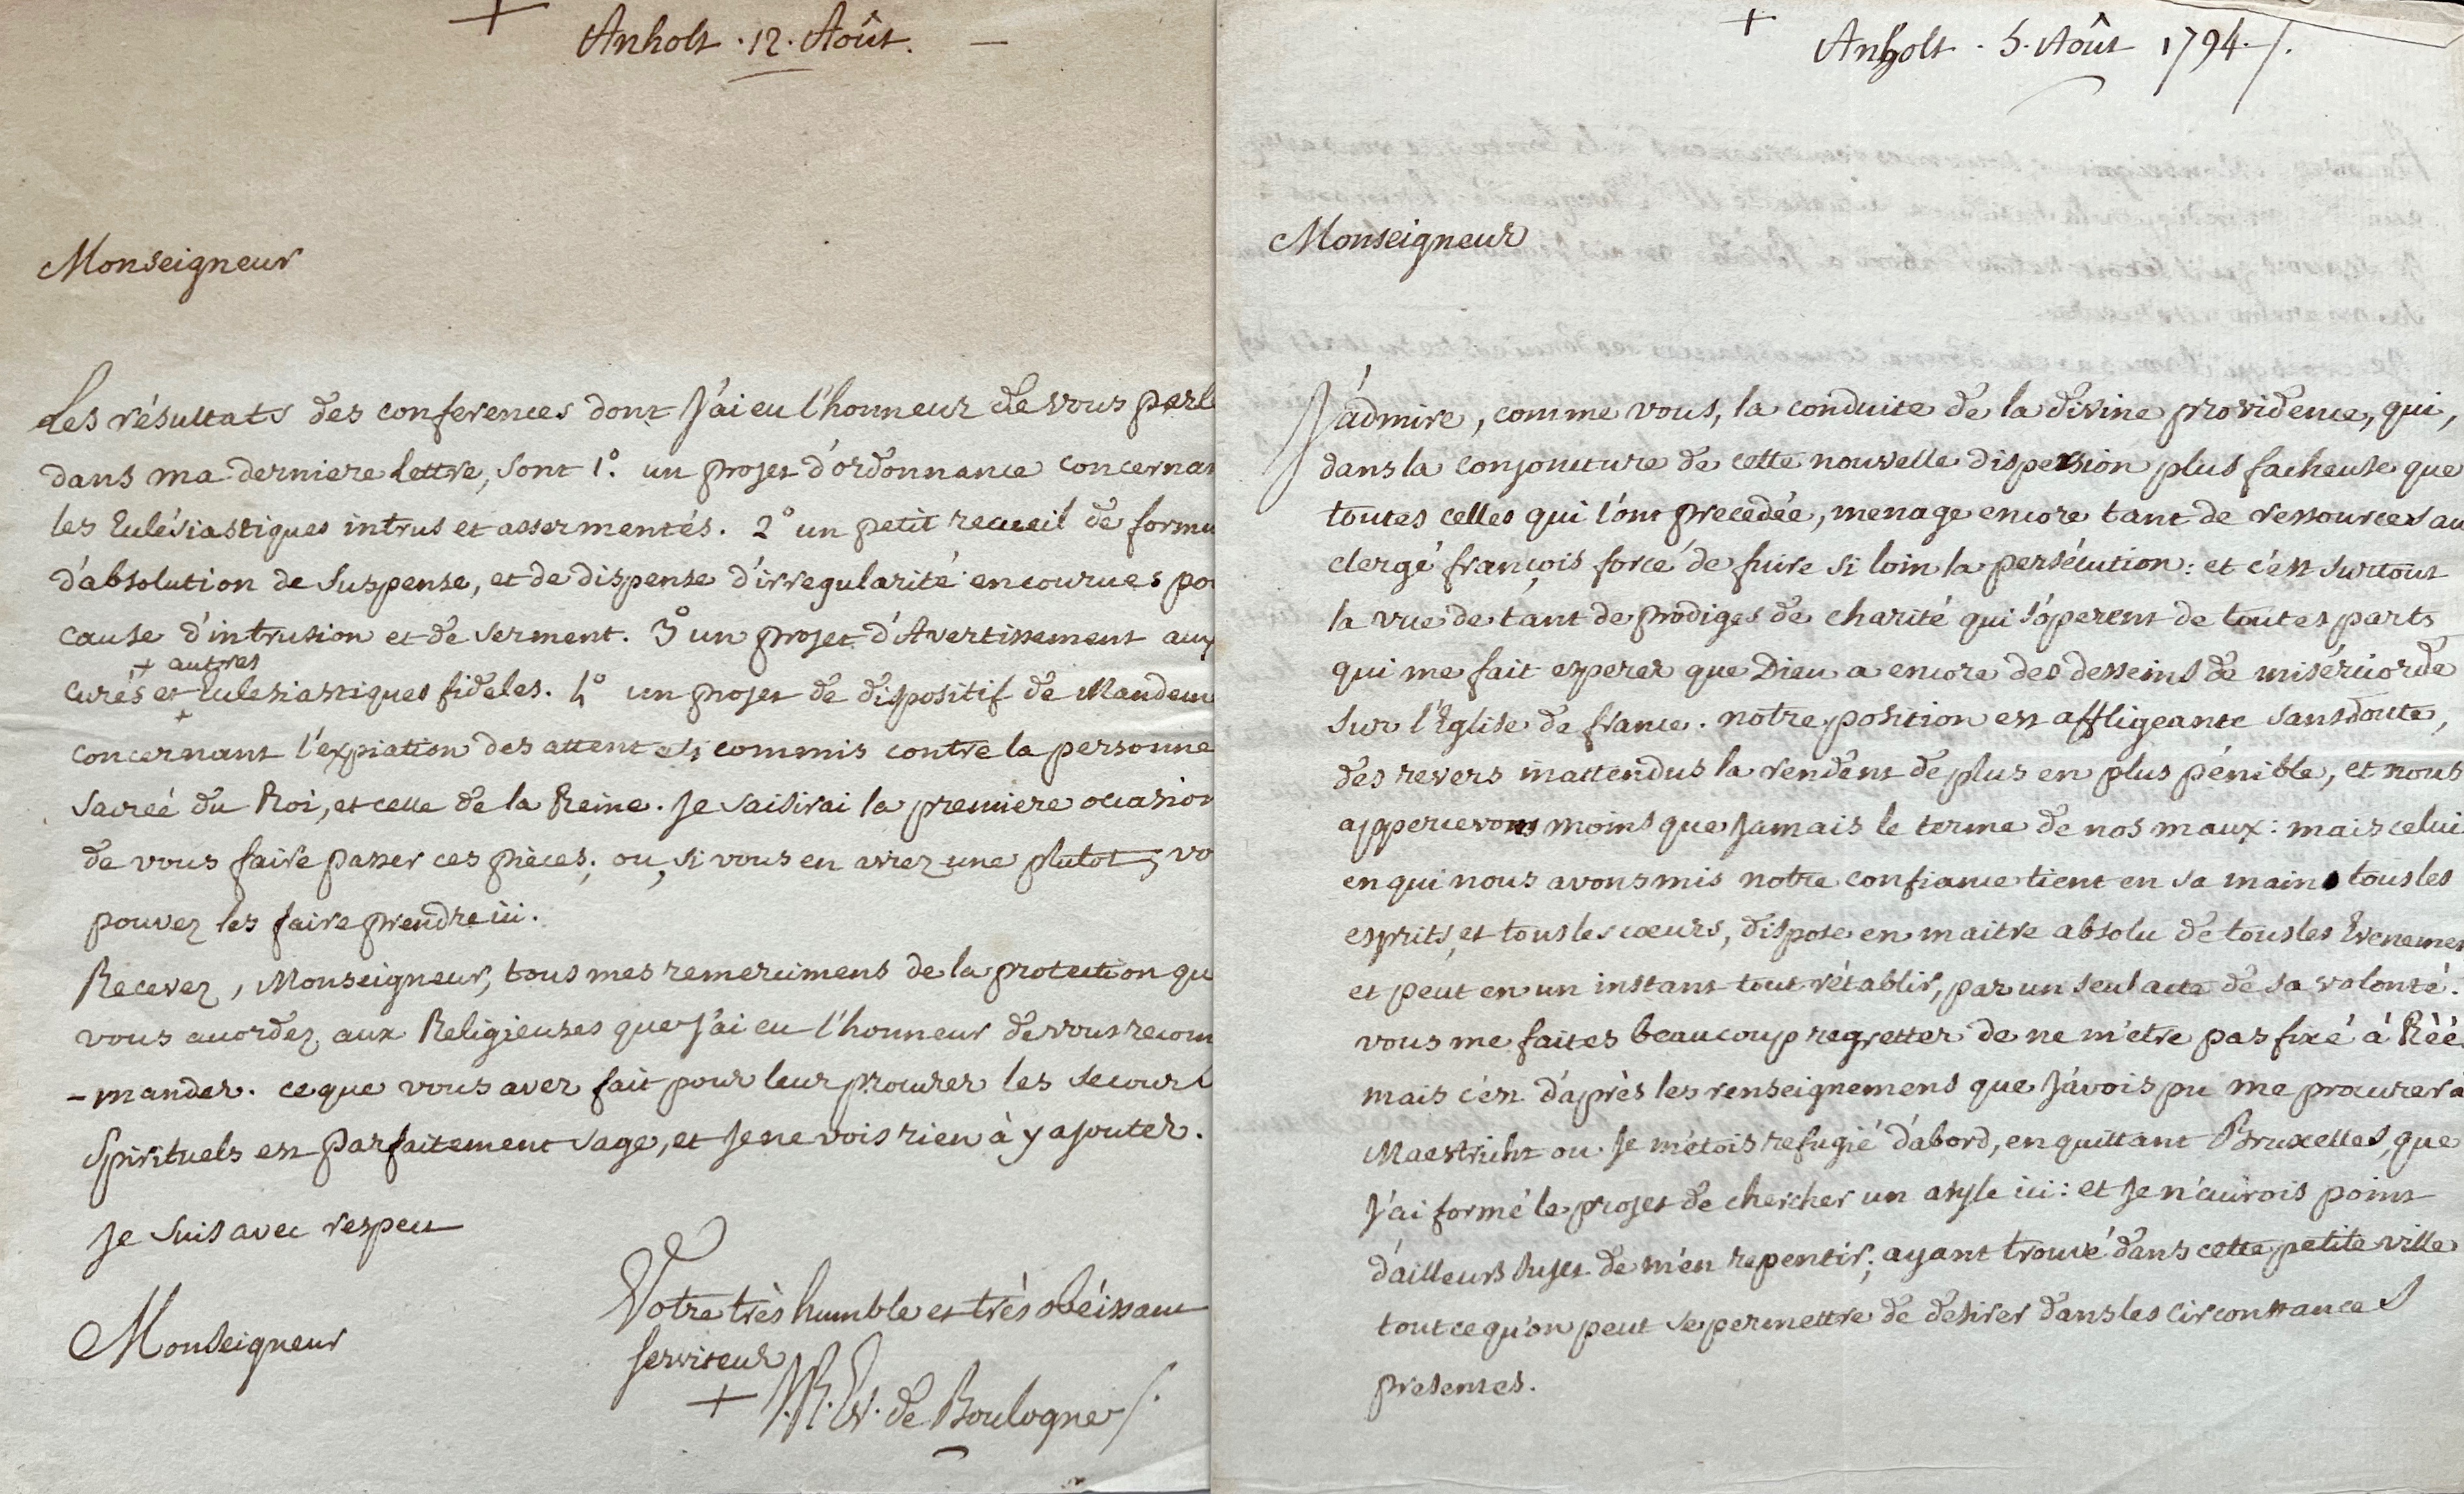 + Anholt . 12. Août. —
Monseigneur
Les résultats des conferences dont J'ai eu l'honneur de vous parl
dans ma derniere lettre, sont 1°. un projet d'ordonnance concernan
les Eclésiastiques intrus et assermentés. 2° un petit recueil de formu
d'absolution de suspense, et de dispense d'irregularité encourues po
cause d'intrusion et de serment. 3° un projet d'Avertissement aux
+ autres
curés et Eclesiastiques fideles. 4° un projet de dispositif de Mandem
concernant l'expiation des attentats commis contre la personne
sacreé du Roi, et celle de la Reine. Je saisirai la premiere occasion
de vous faire passer ces pièces; ou, si vous en aviez une plutot, vo
pouvez les faire prendre ici.
Recevez, Monseigneur, tous mes remercimens de la protection qu
vous accordez aux Religieuses que J'ai eu l'honneur de vous recom
-mander. ce que vous avez fait pour leur procurer les secours
spirituels est parfaitement sage, et Je ne vois rien à y ajouter.
Je suis avec respect
Monseigneur
Votre très humble et très obéissant
serviteur
+ J.R. Ev. de Boulogne /.
+ Anholt . 5. Août 1794. /.
Monseigneur
J'admire, comme vous, la conduite de la divine providence, qui,
dans la conjoncture de cette nouvelle dispersion plus facheuse que
toutes celles qui l'ont precedée, menage encore tant de ressources au
clergé françois forcé de fuire si loin la persécution: et c'est surtout
la vue de tant de prodiges de charité qui s'operent de toutes parts
qui me fait esperer que Dieu a encore des desseins de miséricorde
sur l'Eglise de france. notre position est affligeante sans doute,
des revers inattendus la rendent de plus en plus pénible, et nous
appercevons moins que Jamais le terme de nos maux: mais celui
en qui nous avons mis notre confiance tient en sa main tous les
esprits, et tous les cœurs, dispose en maitre absolu de tous les Evenemen
et peut en un instant tout rétablir, par un seul acte de sa volonté.
vous me faites beaucoup regretter de ne m'etre pas fixé à Réé
mais c'est d'après les renseignemens que J'avois pu me procurer à
Maestricht ou Je m'étois refugié d'abord, en quittant Bruxelles, que
J'ai formé le projet de chercher un asyle ici: et Je n'aurois point
d'ailleurs sujet de m'en repentir; ayant trouvé dans cette petite ville
tout ce qu'on peut se permettre de desirer dans les circonstances
presentes.